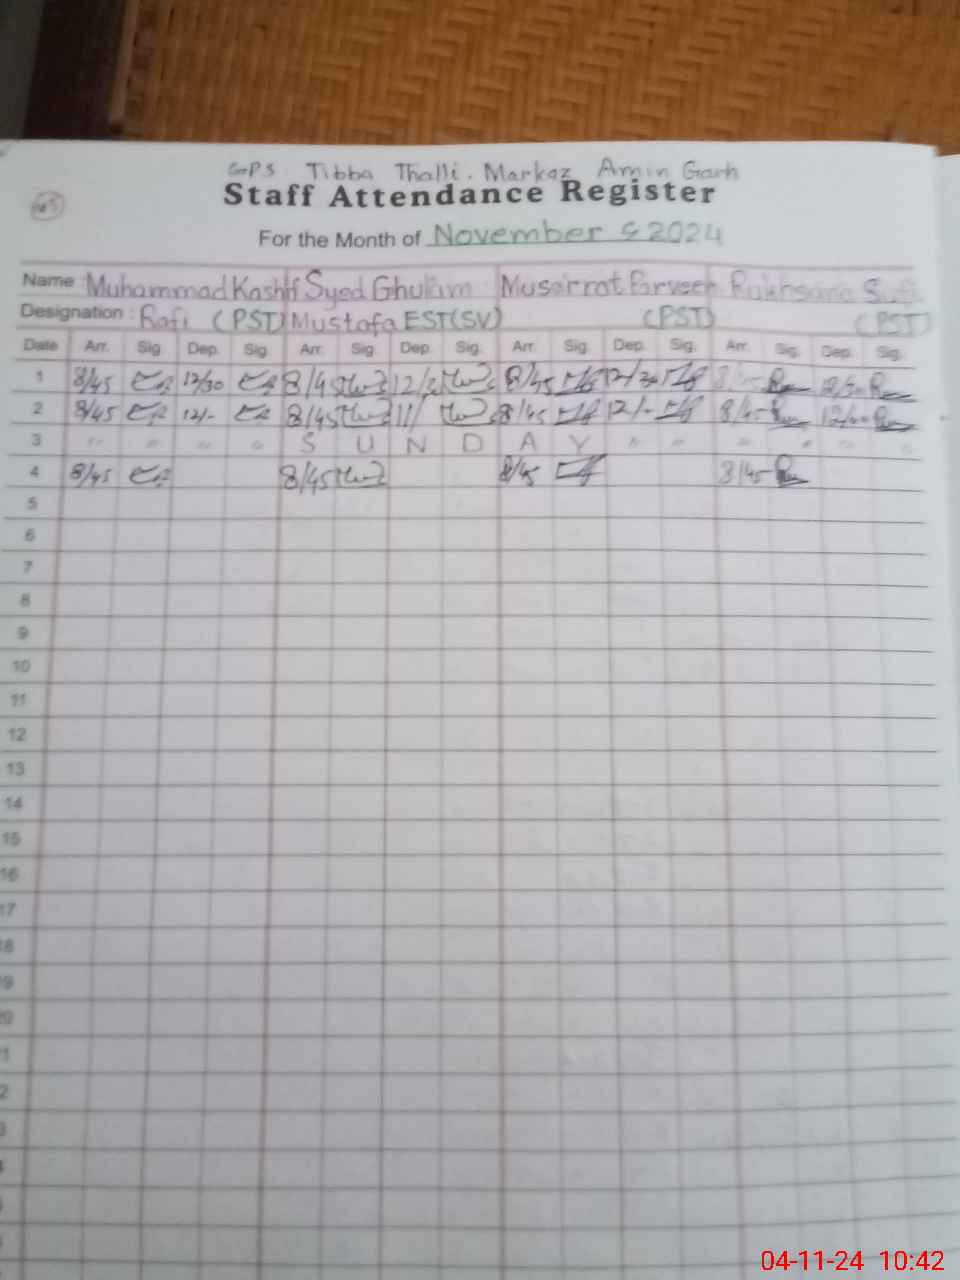 GPS Tibba Thalli. Markaz Amin Garh
Staff Attendance Register
For the Month of November 2024
Name: Muhammad Kashif Syed Ghulam Musarrat Parveen Rukhsana
Designation: Rafi (PST) Mustafa EST(SV) (PST) (PST)
Date Arr. Sig. Dep. Sig. Arr. Sig. Dep. Sig. Arr. Sig. Dep. Sig. Arr. Sig. Dep. Sig.
1 8/45 12/30 8/45 8/45 12/30 8/45
2 8/45 12/- 8/45 11/ 8/45 12/- 8/45
3 " " " " S U N D A Y " " " " " "
4 8/45 8/45 8/45 8/45
5
6
7
8
9
10
11
12
13
14
15
16
17
18
19
20
04-11-24 10:42